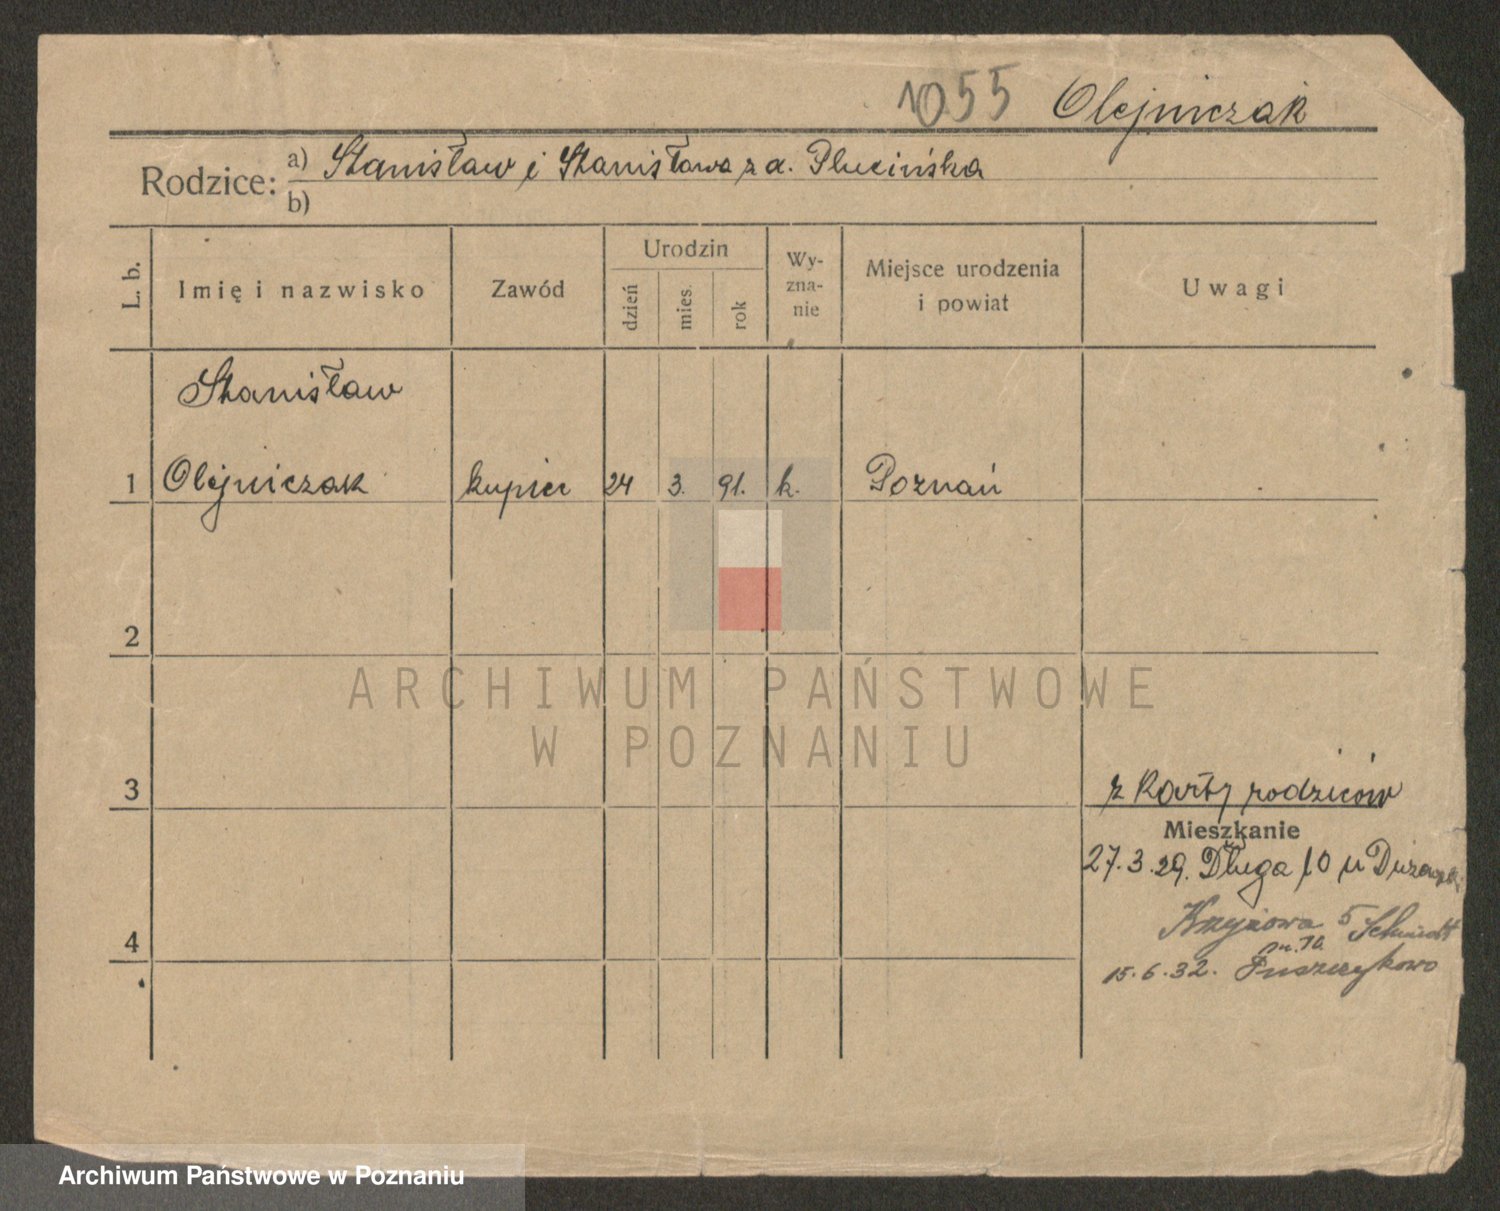 1055 Olejniczak
Rodzice: a) Stanisław i Stanisława z d. Plucińska
b)
L. b.
Imię i nazwisko
Zawód
Urodzin
dzień
mies.
rok
Wy-
zna-
nie
Miejsce urodzenia
i powiat
Uwagi
Stanisław
1 Olejniczak kupiec 24 3. 91. k. Poznań
2
ARCHIWUM PAŃSTWOWE
W POZNANIU
3
z karty rodziców
Mieszkanie
27.3.29. Długa 10 u
4
Krzyżowa 5 Schmidt
m. 10.
15.6.32. Puszczykowo
Archiwum Państwowe w Poznaniu